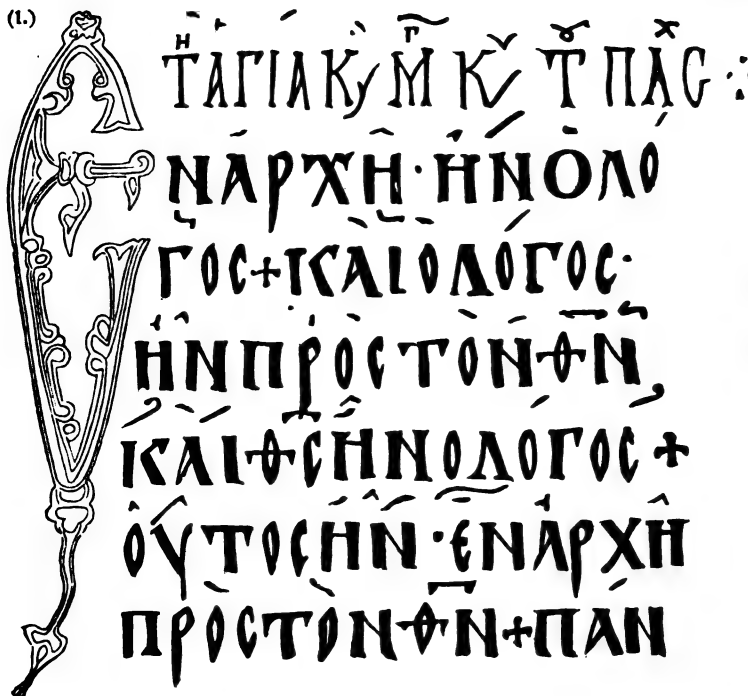 (1.)
Τῌ ΑΓΙΑ Κ Μ̅Γ Κ Τ ΠΑϹΧ
ΕΝ ΑΡΧΗ· ΗΝ Ο ΛΟ
ΓΟϹ + ΚΑΙ Ο ΛΟΓΟϹ·
ΗΝ ΠΡΟϹ ΤΟΝ Θ̅Ν̅,
ΚΑΙ Θ̅Ϲ̅ ΗΝ Ο ΛΟΓΟϹ +
ΟΥΤΟϹ ΗΝ· ΕΝ ΑΡΧΗ
ΠΡΟϹ ΤΟΝ Θ̅Ν̅ + ΠΑΝ